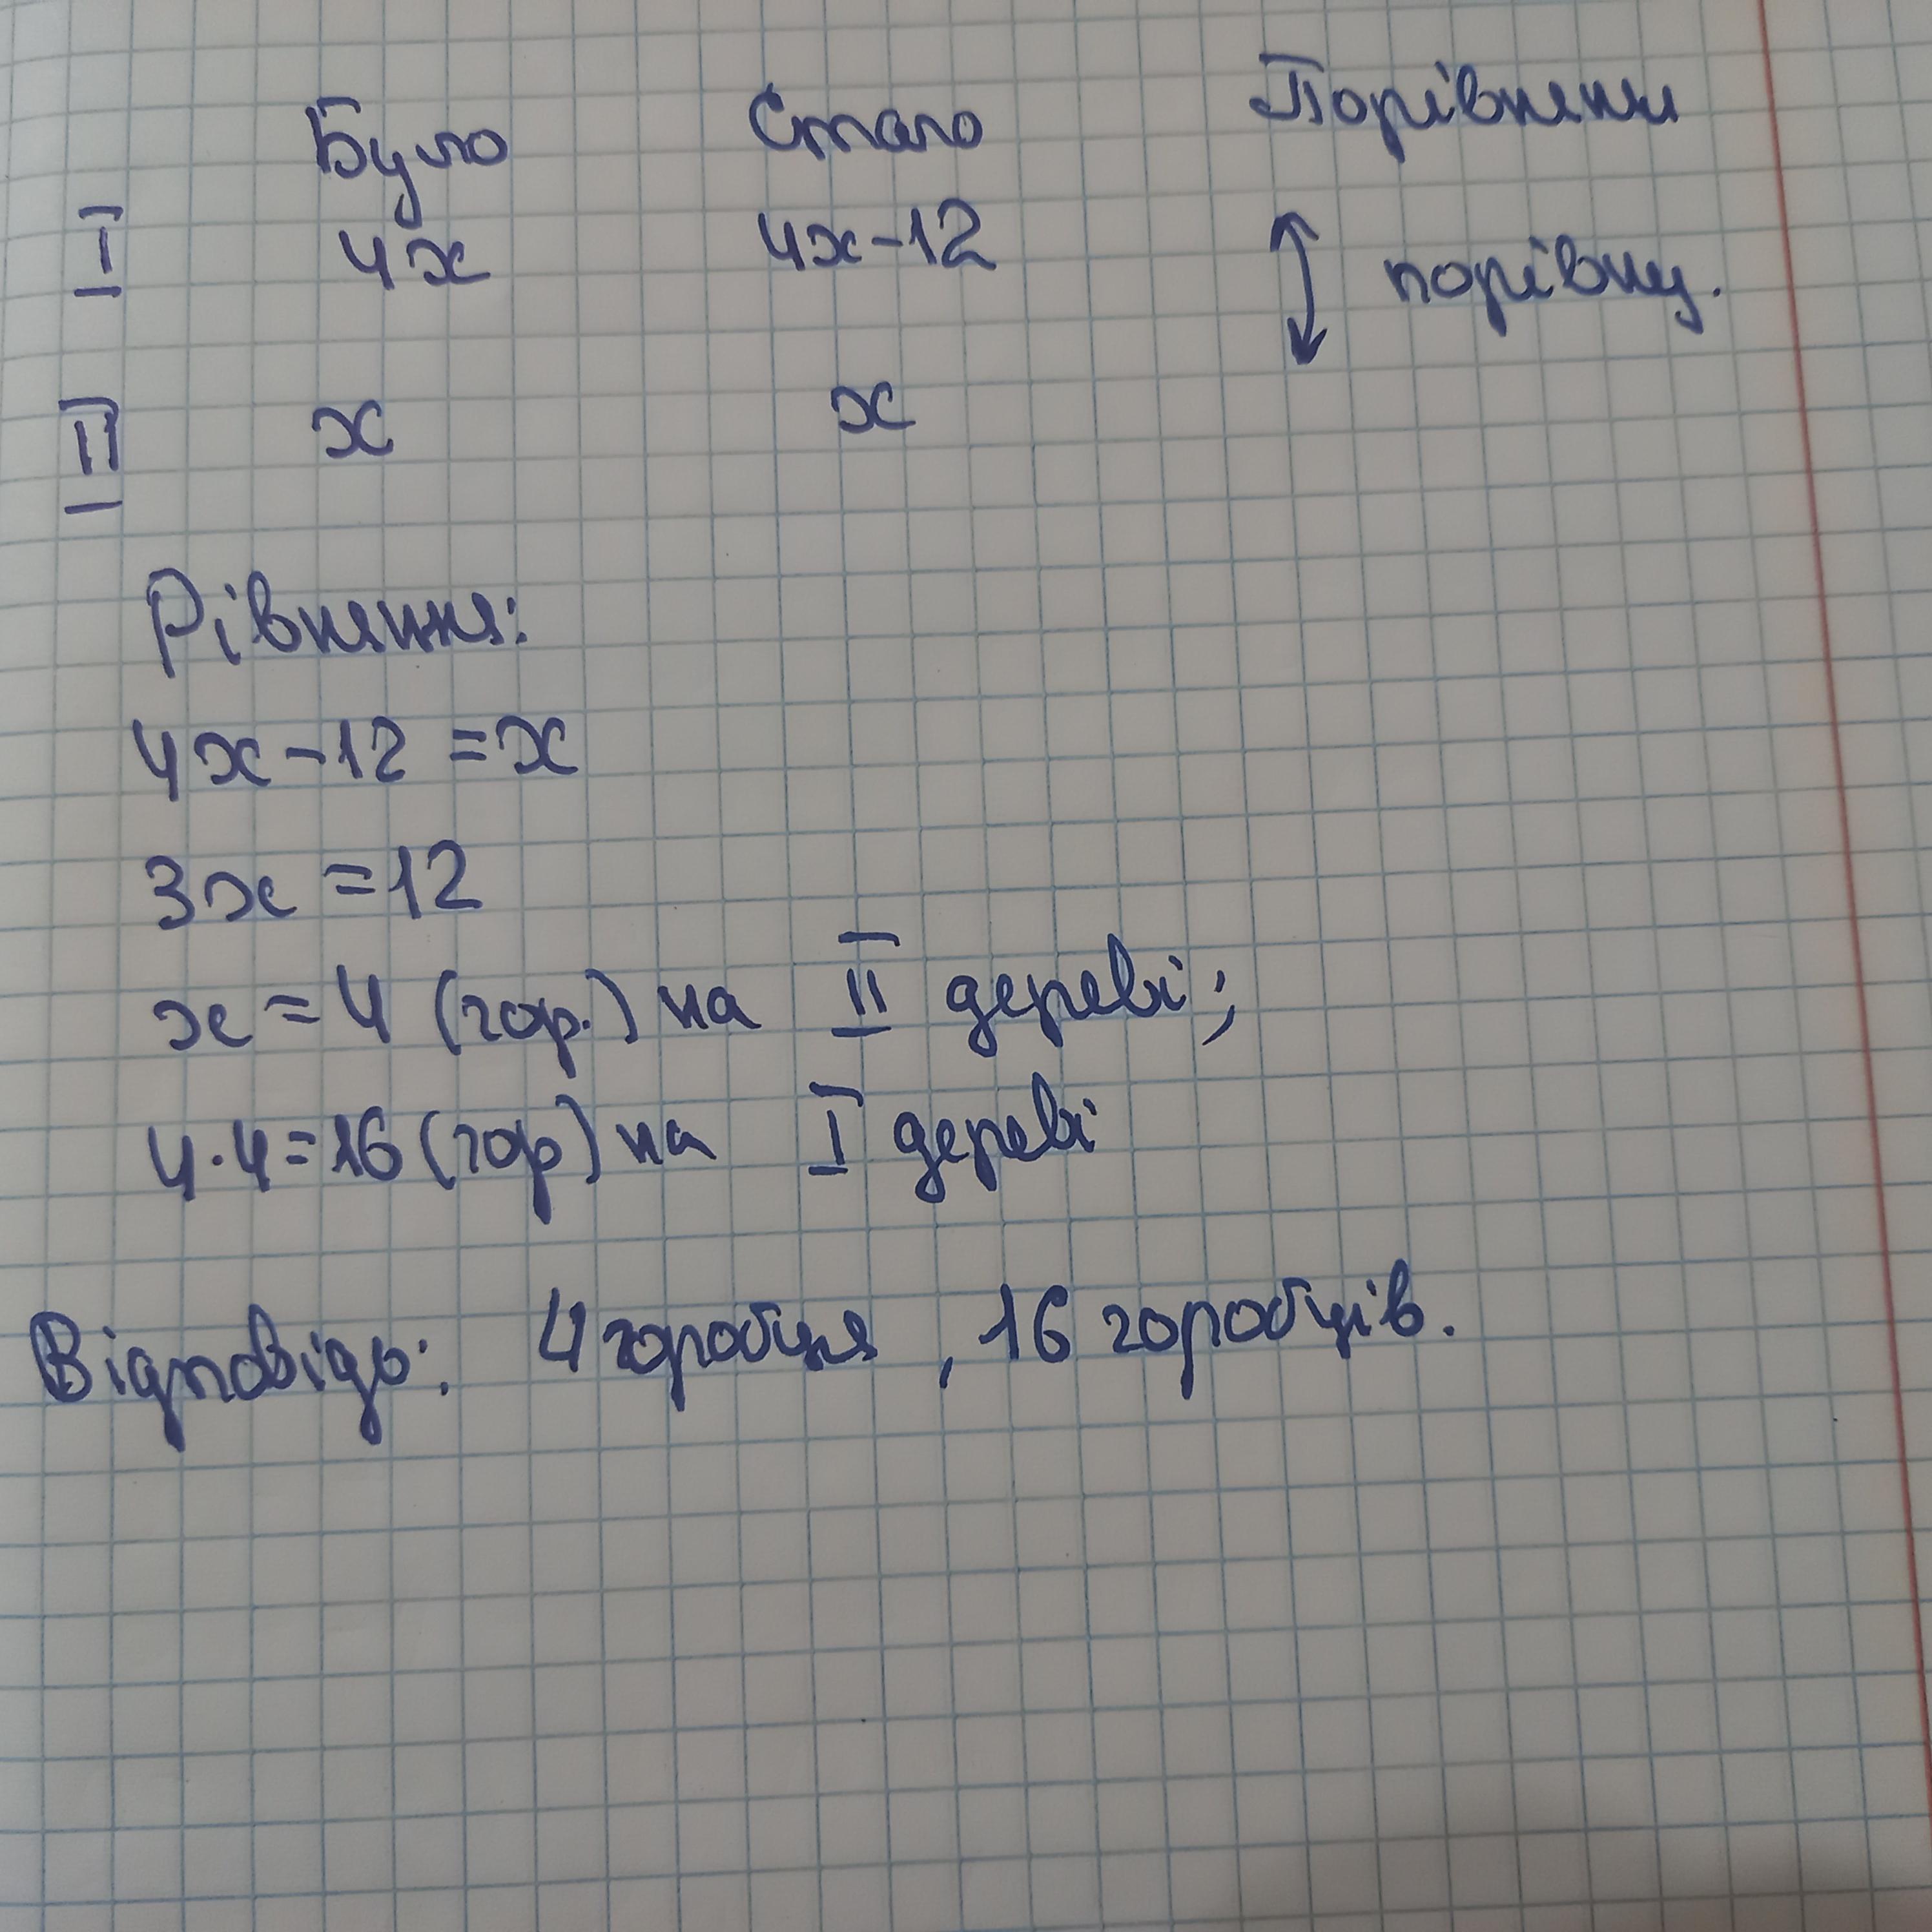 Було Стало Порівняння
I 4x 4x-12 порівну.
II x x
Рівняння:
4x-12=x
3x=12
x=4 (гор.) на II дереві;
4·4=16 (гор) на I дереві
Відповідь: 4 горобця, 16 горобців.